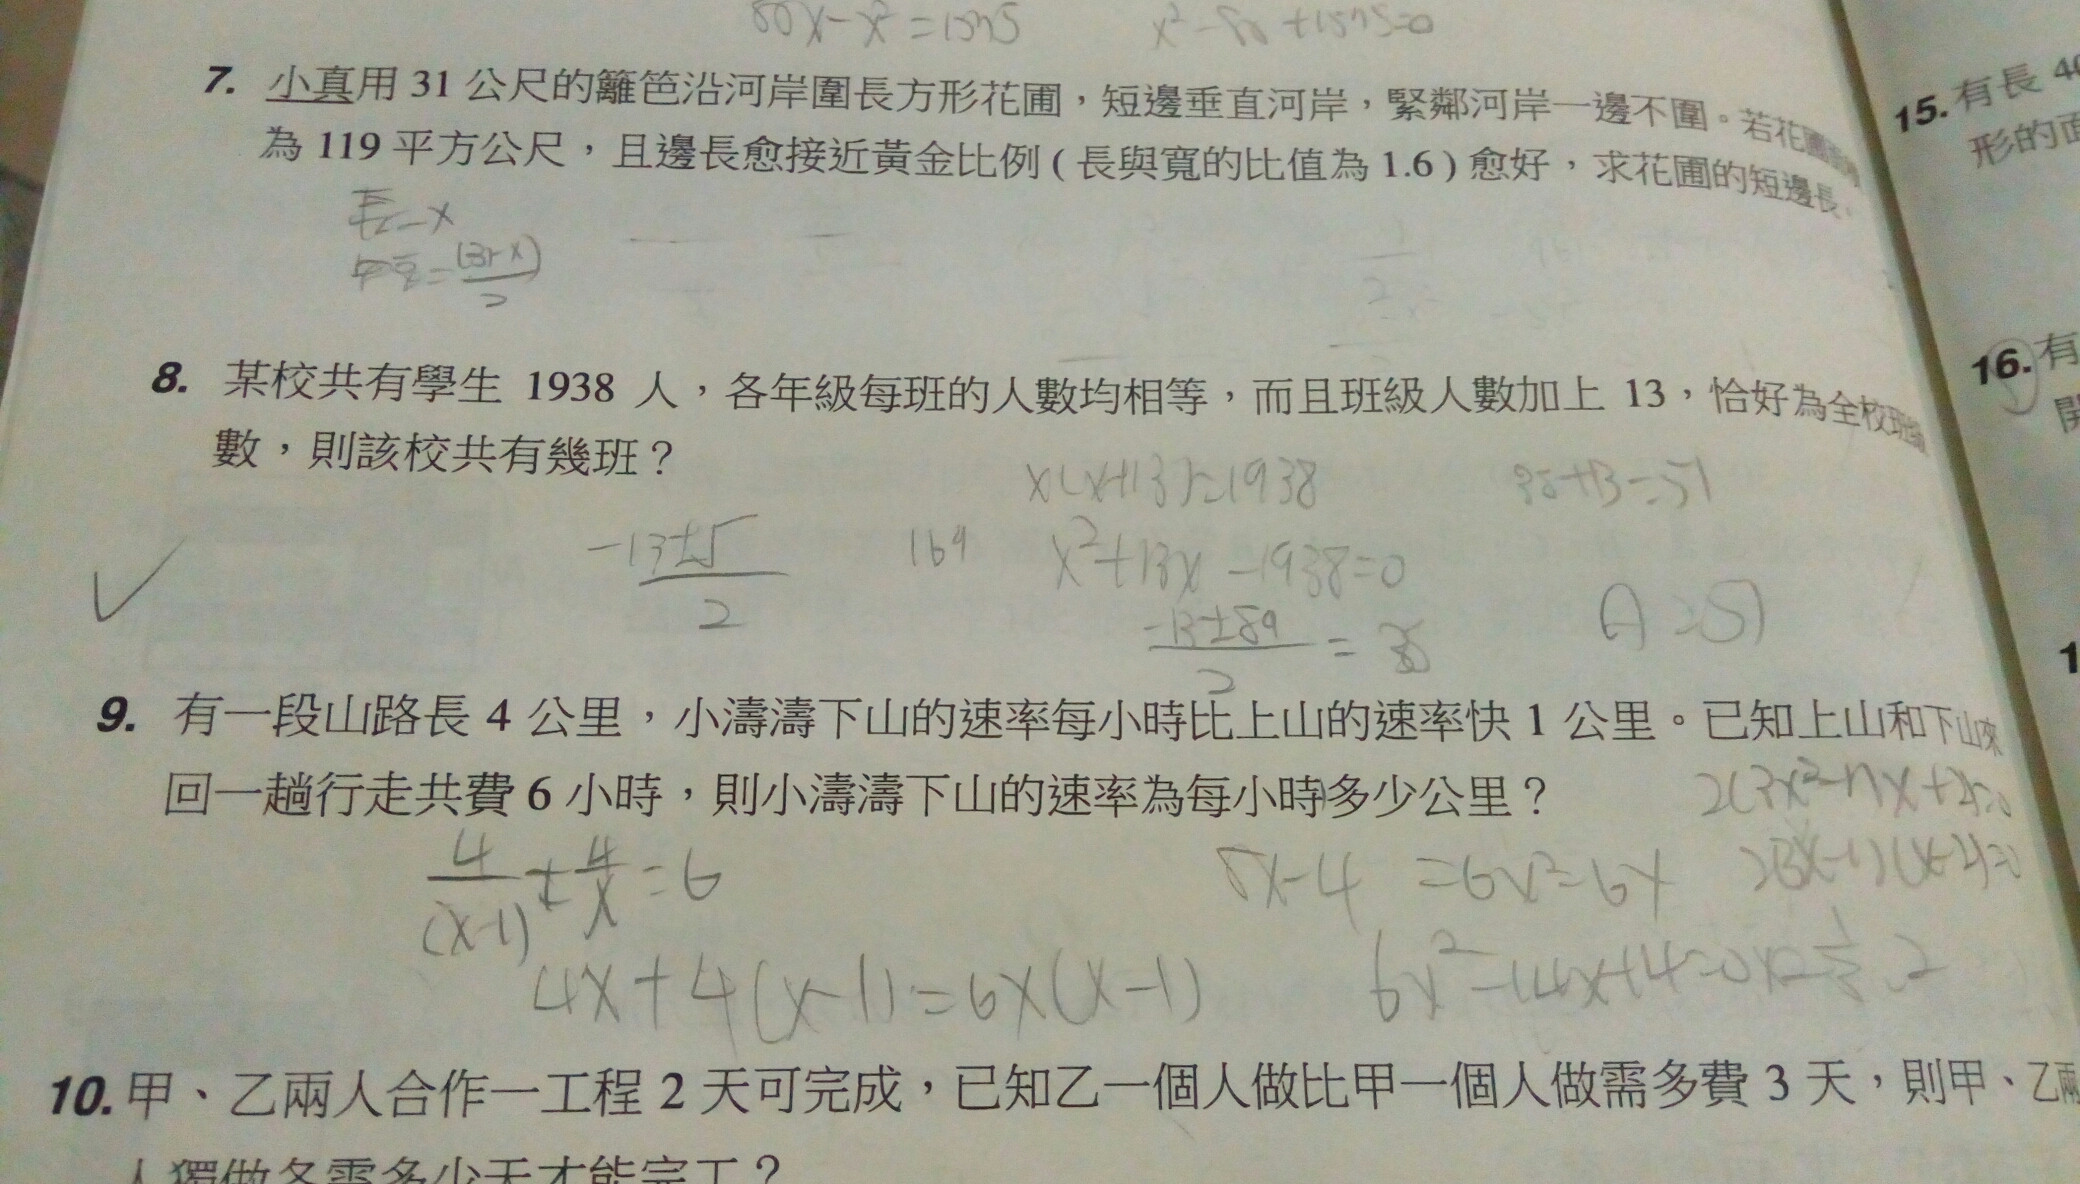 80x-x²=1575 x²-80x+1575=0
7. 小真用 31 公尺的籬笆沿河岸圍長方形花圃，短邊垂直河岸，緊鄰河岸一邊不圍。若花圃
為 119 平方公尺，且邊長愈接近黃金比例 ( 長與寬的比值為 1.6 ) 愈好，求花圃的短邊長
長=x
(31-x)/2
8. 某校共有學生 1938 人，各年級每班的人數均相等，而且班級人數加上 13，恰好為全校班級
數，則該校共有幾班？
x(x+13)=1938 38+13=51
-13±√ /2 169 x²+13x-1938=0
-13±89/2 = A=51
9. 有一段山路長 4 公里，小濤濤下山的速率每小時比上山的速率快 1 公里。已知上山和下山來
回一趟行走共費 6 小時，則小濤濤下山的速率為每小時多少公里？
2(3x²-7x+2)=0
4/(x-1)+4/x=6 8x-4 =6x²-6x 2(3x-1)(x-2)=0
4x+4(x-1)=6x(x-1) 6x²-14x+4=0 x=1/3,2
10. 甲、乙兩人合作一工程 2 天可完成，已知乙一個人做比甲一個人做需多費 3 天，則甲、乙兩
人獨做各需多少天才能完工？
15. 有長 40
形的面
16. 有
開
1